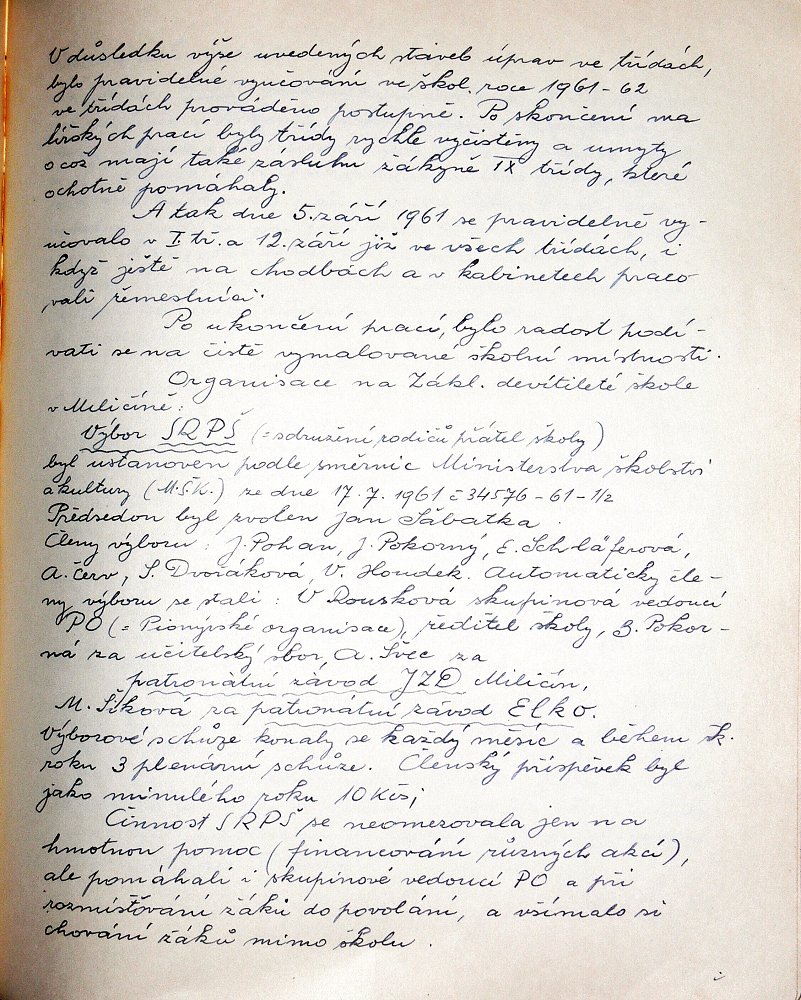 V důsledku výše uvedených staveb úprav ve třídách,
bylo pravidelné vyučování ve škol. roce 1961-62
ve třídách prováděno postupně. Po skončení ma
lířských prací byly třídy rychle vyčistěny a umyty
o což mají také zásluhu žákyně IX třídy, které
ochotně pomáhaly.
A tak dne 5. září 1961 se pravidelně vy-
učovalo v I. tř. a 12. září již ve všech třídách, i
když ještě na chodbách a v kabinetech praco
vali řemeslníci.
Po ukončení prací, bylo radost podí-
vati se na čistě vymalované školní místnosti.
Organisace na Zákl. devítileté škole
v Miličíně:
Výbor SRPŠ (= sdružení rodičů přátel školy)
byl ustanoven podle směrnic Ministerstva školství
a kultury (M.Š.K.) ze dne 17. 7. 1961 č 34576-61-1/2
Předsedou byl zvolen Jan Sábatka.
Členy výboru: J. Pohan, J. Pokorný, E. Schläferová,
A. Červ, S. Dvořáková, V. Houdek. Automaticky čle-
ny výboru se stali: V Rousková skupinová vedoucí
PO (= Pionýrské organisace), ředitel školy, B. Pokor-
ná za učitelský sbor, A. Švec za
patronátní závod JZD Miličín,
M. Šíková za patronátní závod Elko.
Výborové schůze konaly se každý měsíc a během šk.
roku 3 plenární schůze. Členský příspěvek byl
jako minulého roku 10 Kčs;
Činnost SRPŠ se neomezovala jen na
hmotnou pomoc (financování různých akcí),
ale pomáhali i skupinové vedoucí PO a při
rozmísťování žáků do povolání, a všímalo si
chování žáků mimo školu.